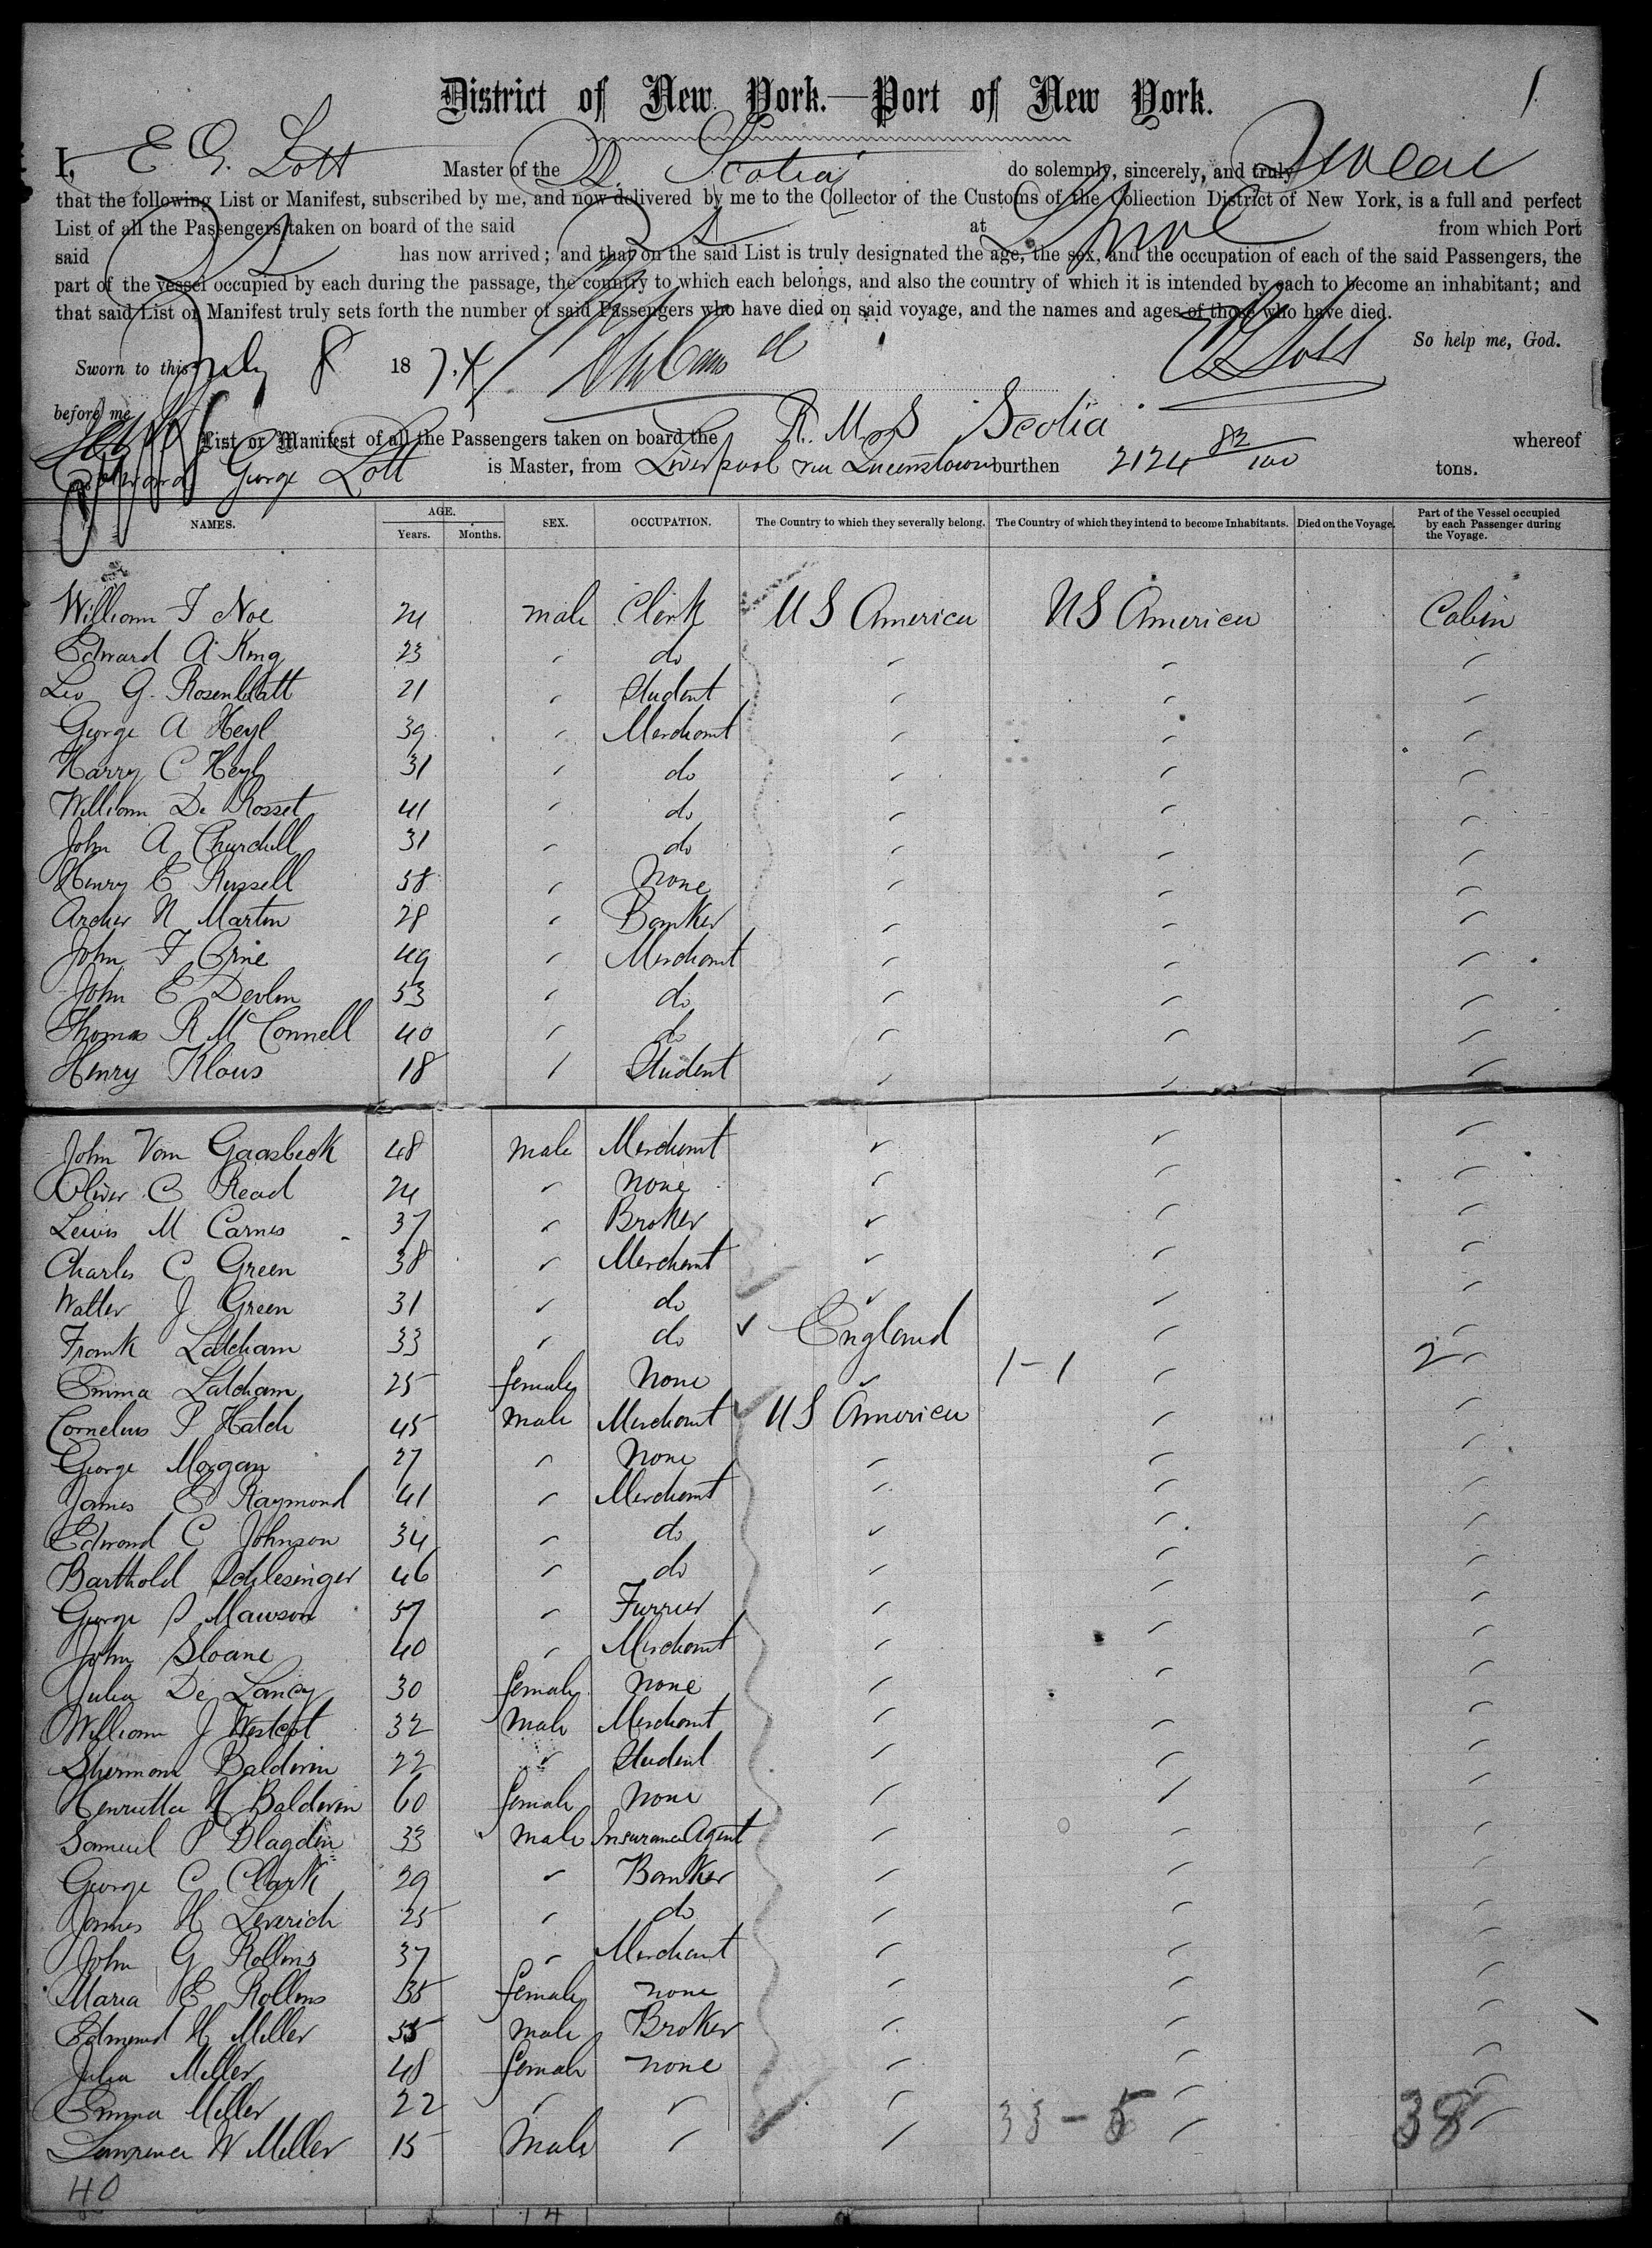 District of New York.—Port of New York.
1
I, E. G. Lott Master of the S. S. Scotia do solemnly, sincerely, and truly Swear
that the following List or Manifest, subscribed by me, and now delivered by me to the Collector of the Customs of the Collection District of New York, is a full and perfect
List of all the Passengers taken on board of the said at from which Port
said has now arrived; and that on the said List is truly designated the age, the sex, and the occupation of each of the said Passengers, the
part of the vessel occupied by each during the passage, the country to which each belongs, and also the country of which it is intended by each to become an inhabitant; and
that said List or Manifest truly sets forth the number of said Passengers who have died on said voyage, and the names and ages of those who have died.
So help me, God.
Sworn to this July 8 1874 E G Lott
before me
List or Manifest of all the Passengers taken on board the R. M. S Scotia whereof
Edward George Lott is Master, from Liverpool via Queenstown burthen 2124 83/100 tons.
NAMES. AGE. Years. Months. SEX. OCCUPATION. The Country to which they severally belong. The Country of which they intend to become Inhabitants. Died on the Voyage. Part of the Vessel occupied by each Passenger during the Voyage.
William F Noe 24 male Clerk U S America U S America Cabin
Edward A King 23 " do " " "
Leo G. Rosenblatt 21 " Student " " "
George A Heyl 39 " Merchant " " "
Harry C Heyl 31 " do " " "
William De Rosset 41 " do " " "
John A Churchill 31 " do " " "
Henry E Russell 58 " None " " "
Archer N Martin 28 " Banker " " "
John F Orne 49 " Merchant " " "
John E Devlin 53 " do " " "
Thomas R McConnell 40 " do " " "
Henry Klous 18 " Student " " "
John Van Gaasbeek 48 male Merchant " " "
Oliver C Read 24 " None " " "
Lewis M Carnes 37 " Broker " " "
Charles C Green 38 " Merchant " " "
Walter J Green 31 " do " " "
Frank Latcham 33 " do England " "
Emma Latcham 25 female None " 1-1 " 2 "
Cornelius P Hatch 45 male Merchant U S America " "
George Morgan 27 " None " " "
James E Raymond 41 " Merchant " " "
Edward C Johnson 34 " do " " "
Barthold Schlesinger 46 " do " " "
George S Mawson 57 " Furrier " " "
John Sloane 40 " Merchant " " "
Julia De Lancy 30 female None " " "
William J Westcot 32 male Merchant " " "
Sherman Baldwin 22 " Student " " "
Henrietta H Baldwin 60 female None " " "
Samuel P Blagden 33 male Insurance Agent " " "
George C Clark 29 " Banker " " "
James H Leverich 25 " do " " "
John G Rollins 37 " Merchant " " "
Maria E Rollins 35 female none " " "
Edmund H Miller 55 male Broker " " "
Julia Miller 48 female none " " "
Emma Miller 22 " " " " "
Lawrence W Miller 15 Male " " 33-5 " 38 "
40
14